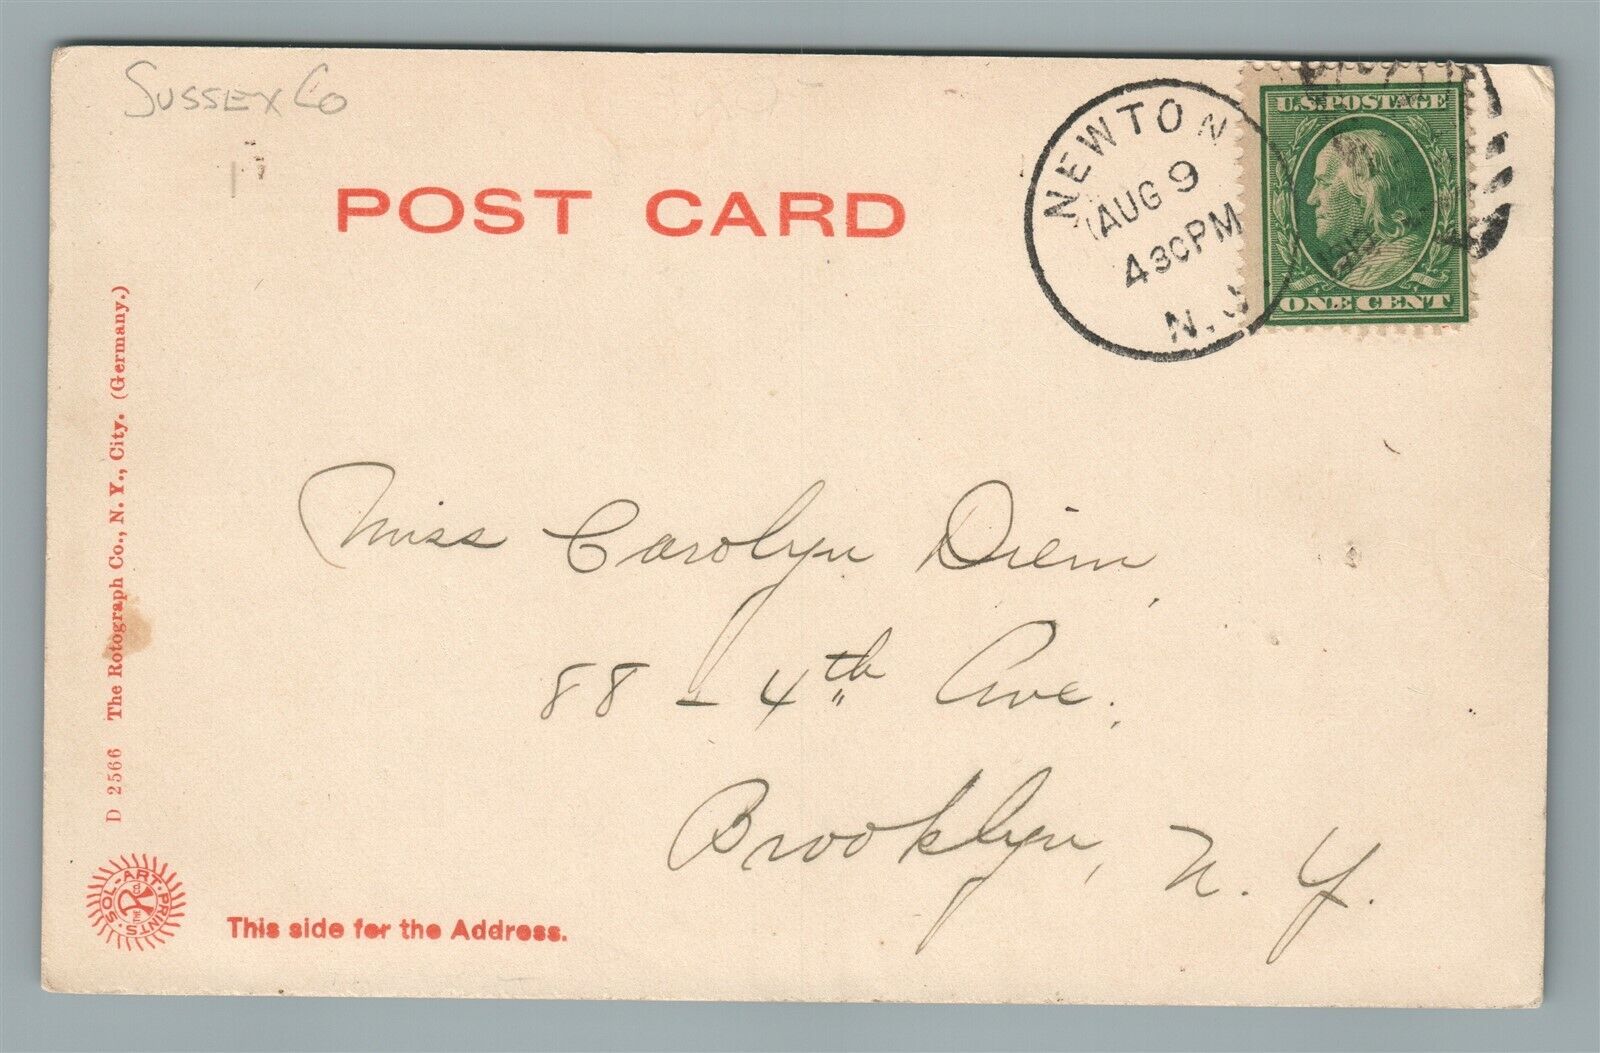 Sussex Co
POST CARD
NEWTON
AUG 9
430PM
N.J.
U.S. POSTAGE
ONE CENT
Miss Carolyn Diem,
88 - 4th Ave.,
Brooklyn, N. Y.
D 2566 The Rotograph Co., N. Y., City. (Germany.)
SOL-ART-PRINTS
THE
This side for the Address.